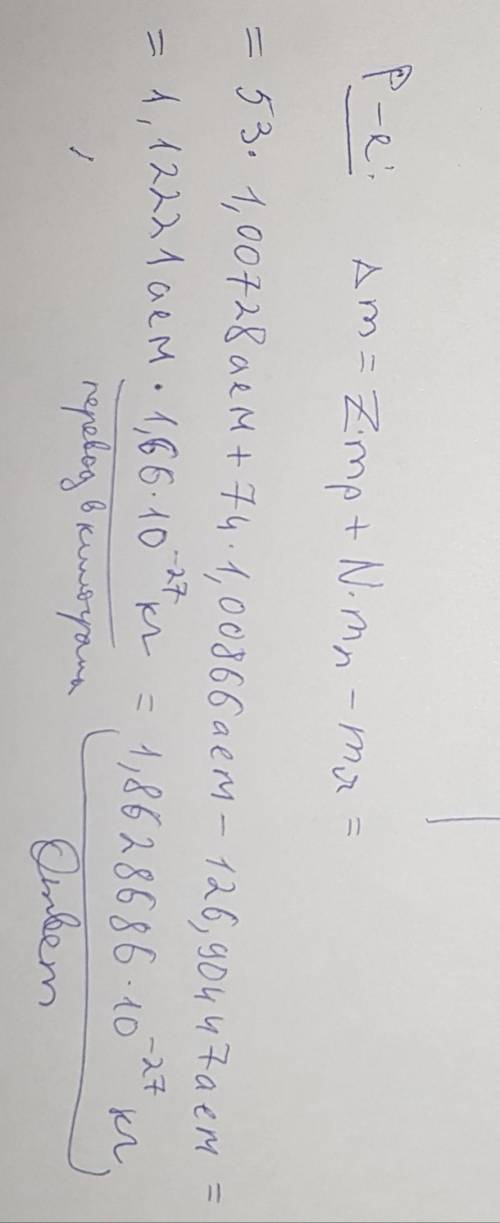 Р-е: Δm = Z·mp + N·mn − mя =
= 53·1,00728аем + 74·1,00866аем − 126,90447аем =
= 1,12221аем · 1,66·10⁻²⁷ кг = 1,8628686·10⁻²⁷ кг
перевод в килограмы Ответ